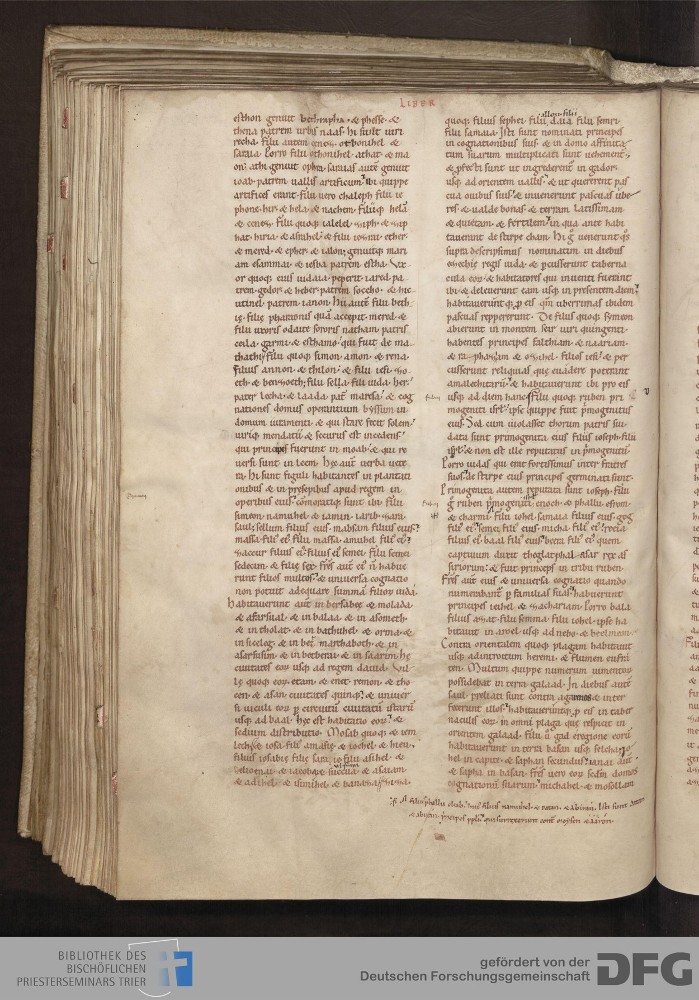 LIBER
esthon genuit bethrapha · & phesse · &
thena patrem urbis naas · hi sunt uiri
recha · filii autem cenez · othonihel · &
saraia · Porro filii othonihel · athat · & ma
on · athi genuit ophra · saraias aute genuit
ioab · patrem uallis artificum · ibi quippe
artifices erant · filii uero chaleph filii ie
phone · hir · & hela · & nachem · filiiq; hela
& cenez · filii quoq; ialelel ·
hat · thiria · & asrahel · & filii iosrai · ether ·
& mered · & epher · & ialon · genuitq; mari
am · & iesba patrem estha · Vx
or quoq; eius iudaia · peperit · iared pa
trem gedor · & heber patrem soccho · & hie
utihel · patrem · ianon · Hii aute filii beth
ie filie pharaonis qua accepit mered · &
filii uxoris odaie sororis natham patris
ceila garmi · & esthamo qui fuit de ma
thathi filii quoq; simon · amon · & rena
filius annon · & thilon · & filii iesi · zo
eth · & benzoeth · filii sella · filii iuda · her
pater lecha · & laada · pat maresa · & cog
nationes domus operantium byssum in
domum iuramenti · & qui stare fecit solem ·
uiriq; mendatii & securus est incedens
qui principes fuerunt in moab · & qui re
uersi sunt in leem · Hec aut uerba uete
ra · Hi sunt figuli habitantes in plantati
onibus & in presepibus apud regem in
operibus eius · comoratiq; sunt ibi · filii
simeon · namuhel · & iamin · iarib · zara
saul · sellum filius eius · mabsan filius eius
sedecim · & filie sex · fres aut ei n habue
runt filios multos · & uniuersa cognatio
non potuit adequare summa filior iuda
habitauerunt aut in bersabee & molada
& asarsual · & in balaa · & in asometh ·
& in tholat · & in bathuhel · & orma · &
in siceleg · & in bet marchaboth · & in
asarsusim · & in betberai · & in saarim · hę
ciuitates eor usq; ad regem dauid · Vil
lę quoq; eor · etam · & enet · remon · & tho
cen · & asan · ciuitates quinq; · & uniuer
si uiculi eor p circuitu ciuitatu istaru
usq; ad baal · hęc est habitatio eor · &
sedium distributio · Mosab quoq; & iem
lech · & iosa filii amasie · & iohel · & hieu ·
filius iosabie filii sarai · filii asihel · &
helioenai · & iacoba · & sucuia · & asaian
& adihel · & isimihel · & banaia
quoq; filius sephei · filii allon · filii
daia filii semri ·
filii samaia · Isti sunt nominati principes
in cognationibus suis · & in domo affinita
tum suarum multiplicati sunt uehement
& pfecti sunt ut ingrederent in gador ·
usq; ad orientem uallis · & ut quererent pas
cua ouibus suis · & inuenerunt pascuas ube
res · & ualde bonas · & terram latissimam
& quietam · & fertilem · in qua ante habi
tauerunt de stirpe cham · Hi g uenerunt qs
supra descripsimus nominatim in diebus
ezechie regis iuda · & pcusserunt taberna
cula eor · & habitatores qui inuenti fuerant
ibi · & deleuerunt eam usq; in presentem diem
habitauerunt q p eis qm uberrimas ibidem
pascuas reppererunt · De filiis quoq; symeon
abierunt in montem seir uiri quingenti ·
habentes principes falthiam · & naariam ·
& raphaiam · & ozihel · filios iesi · & per
cusserunt reliquias que euadere poterant
amalechitaru · & habitauerunt ibi pro eis
usq; ad diem hanc · filii quoq; ruben pri
mogeniti isrl · ipse quippe fuit pmogenitus
eius · Sed cum uiolasset thorum patris sui ·
data sunt primogenita eius filiis ioseph · filii
isrl · & non est ille reputatus in pmogenitu
Porro iudas qui erat fortissimus inter fratres
suos · de stirpe eius principes germinati sunt ·
Primogenita autem reputata sunt ioseph · filii
g ruben pmogeniti isrl · enoch · & phallu · esrom ·
& charmi · filii iohel · samaia filius eius · gog
fil ei · semei fil eius · micha · fil ei · reeia
filius ei · baal fil eius · beera fil ei · quem
captiuum duxit theglatphal asar rex as
siriorum · & fuit princeps in tribu ruben ·
Fres aut eius · & uniuersa cognatio quando
numerabant p familias suas · habuerunt
principes ieihel · & zachariam · Porro bala
filius azaz · filii semma · filii iohel · ipse ha
bitauit in aroel usq; ad nebo · & beelmeon ·
Contra orientalem quoq; plagam habitauit
usq; ad introitum heremi · & flumen eufra
ten · Multum quippe numerum iumentor
possidebat in terra galaad · In diebus aute
saul · preliati sunt contra agarenos · & inter
fecerunt illos · habitauerunt q p eis in taber
naculis eor · in omni plaga que respicit in
orientem galaad · filii u gad e regione eoru
habitauerunt in terra basan usq; selcha · io
hel in capite · & saphan secundus · ianai aut
& saphat in basan · fres uero eor scdm domos
cognationu suarum · michahel · & mosollam
BIBLIOTHEK DES
BISCHÖFLICHEN
PRIESTERSEMINARS TRIER
gefördert von der
Deutschen Forschungsgemeinschaft
DFG